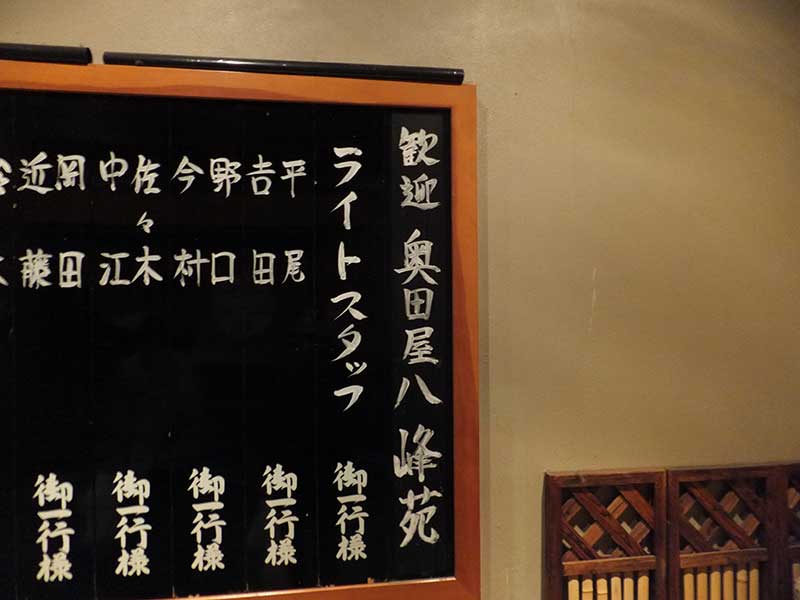 歓迎 奥田屋八峰苑
ライトスタッフ 御一行様
平尾
吉田 御一行様
野口
今村 御一行様
佐々木
中江 御一行様
岡田
近藤 御一行様